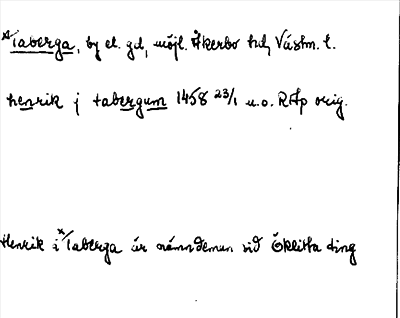 *Taberga, by el. gd, möjl. Åkerbo hd, Västm. l.
henrik j tabergum 1458 23/1 u.o. RAp orig.
Henrik i *Taberga är nämndeman vid Öklista ting